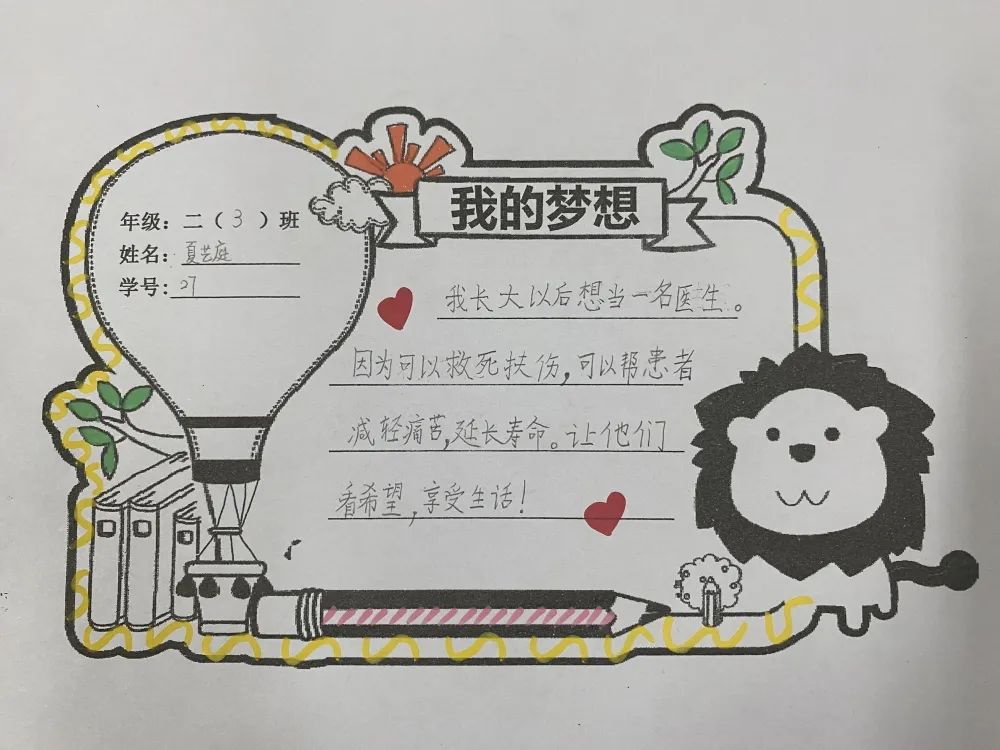 我的梦想
年级：二（3）班
姓名：夏艺庭
学号：27
我长大以后想当一名医生。
因为可以救死扶伤，可以帮患者
减轻痛苦，延长寿命。让他们
看希望，享受生活！